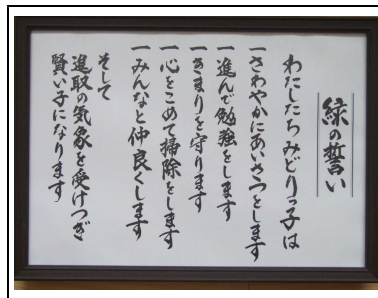 緑の誓い
わたしたちみどりっ子は
一さわやかにあいさつをします
一進んで勉強をします
一きまりを守ります
一心をこめて掃除をします
一みんなと仲良くします
そして
進取の気象を受けつぎ
賢い子になります